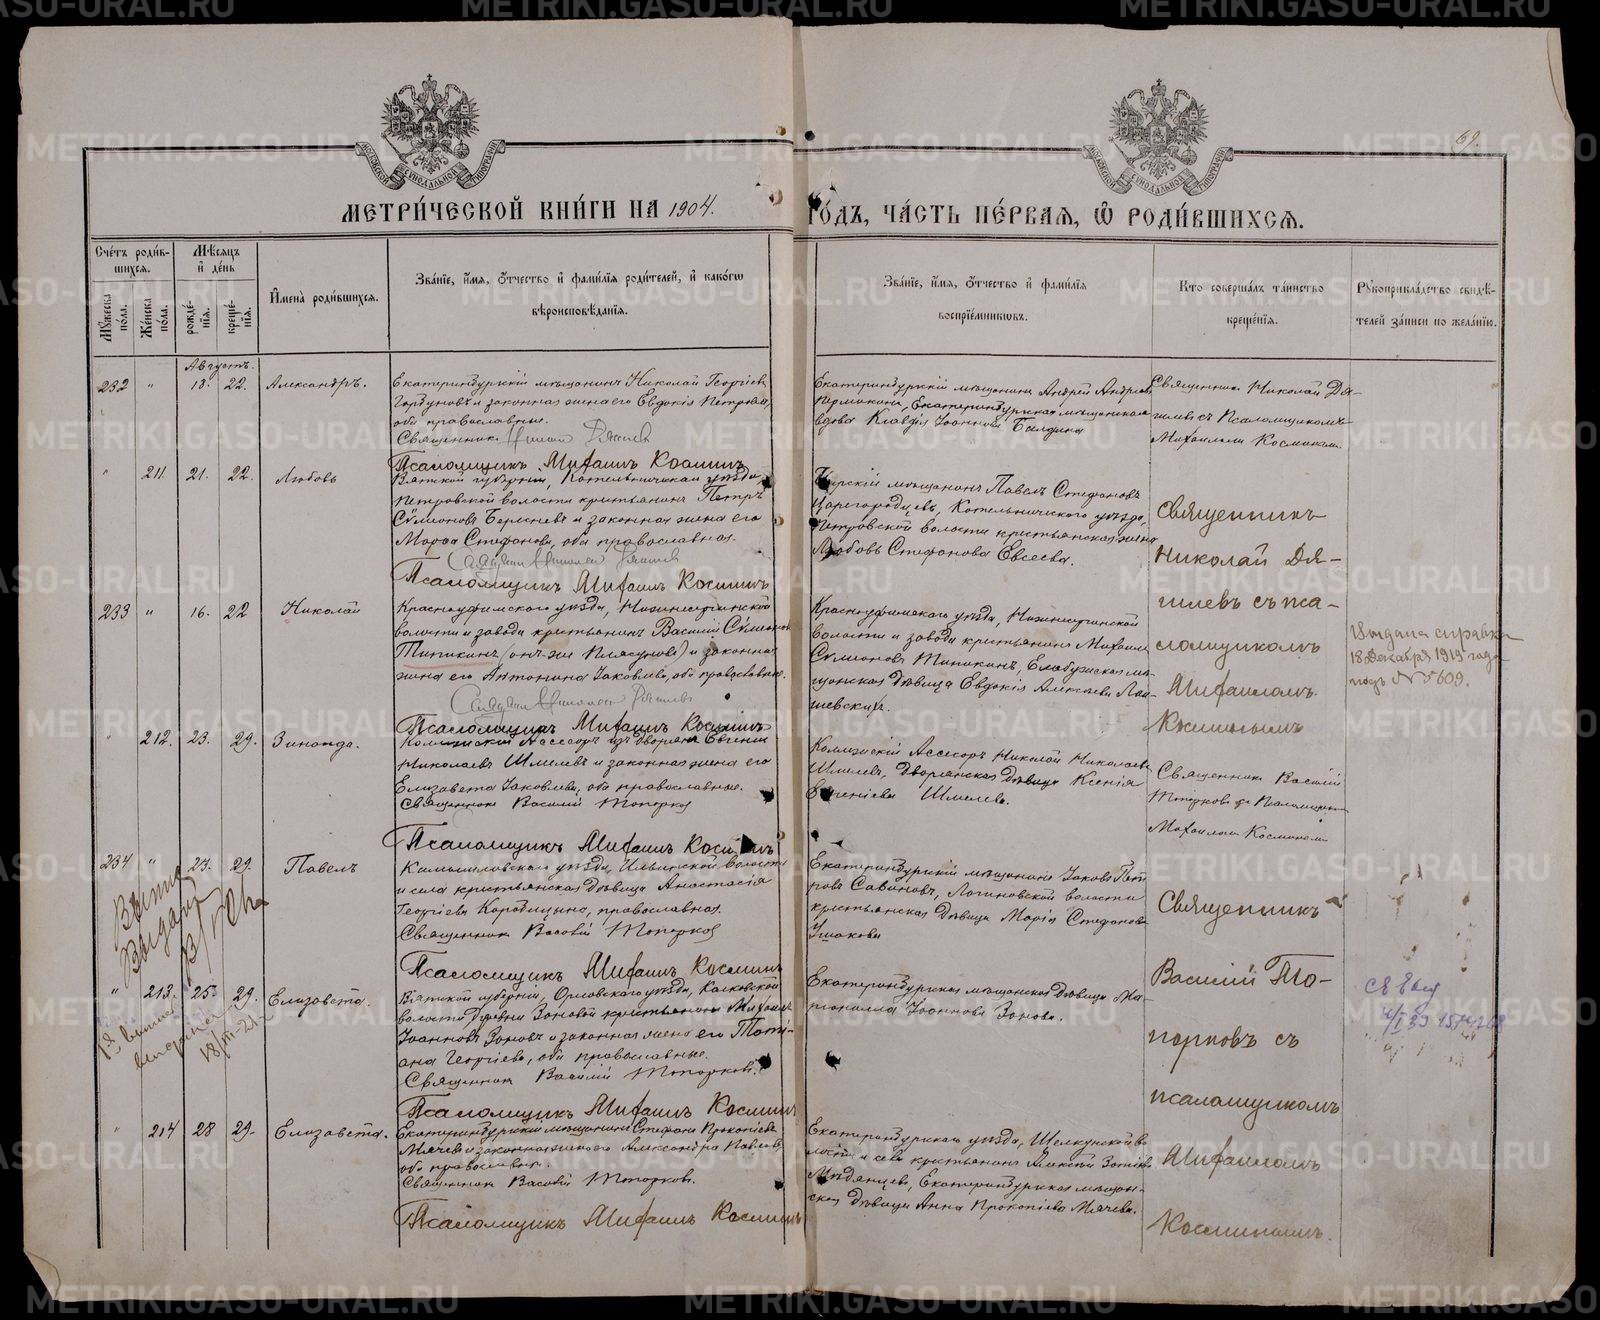 69.
МОСКОВСКОЙ СѴНОДАЛЬНОЙ ТИПОГРАФІИ
МЕТРИ́ЧЕСКОЙ КНИ́ГИ НА 1904.
ГО́ДЪ, ЧА́СТЬ ПЕ́РВАЯ, Ѿ РОДИ́ВШИХСѦ.
Сче́тъ роди́в-
шихся.
Мѣ́сяцъ
и҆ де́нь
Мꙋ́жеска по́ла.
Же́нска по́ла.
рожде́-
нїя.
креще́-
нїя.
И҆мена̀ роди́вшихся.
Зва́нїе, и҆́мя, ѻ҆́тчество и҆ фами́лїя роди́телей, и҆ како́гѡ
вѣроисповѣ́данїя.
Зва́нїе, и҆́мя, ѻ҆́тчество и҆ фами́лїя
воспрїе́мниковъ.
Кто̀ соверша́лъ та́инство
креще́нїя.
Рꙋкоприкла́дство свидѣ́-
телей за́писи по жела́нїю.
Августъ.
232 " 18. 22. Александръ.
Екатеринбургскій мѣщанинъ Николай Георгіевъ
Горбуновъ и законная жена его Евдокія Петрова,
оба православные.
Священникъ Николай Дягилевъ
Псаломщикъ Михаилъ Косминъ
Екатеринбургскій мѣщанинъ Андрей Андреевъ
Пермикинъ, Екатеринбургская мѣщанская
вдова Клавдія Іоаннова Балдина
Священникъ Николай Дя-
гилевъ съ Псаломщикомъ
Михаиломъ Косминымъ.
" 211. 21. 22. Любовь
Вятской губерніи, Котельническаго уѣзда,
Петровской волости крестьянинъ Петръ
Сѵмеоновъ Береснев и законная жена его
Марѳа Стефанова, оба православные.
Священникъ Николай Дягилевъ
Псаломщикъ Михаилъ Косминъ
мѣщанинъ Павелъ Стефановъ
Царегородцевъ, Котельническаго уѣзда,
Петровской волости крестьянская жена
Любовь Стефанова Евсеева.
Священникъ
Николай Дя-
гилевъ съ пса-
ломщикомъ
Михаиломъ
Косминымъ
233 " 16. 22 Николай
Красноуфимскаго уѣзда, Нижнесергинской
волости и завода крестьянинъ Василій Сѵмеоновъ
Типикинъ (онъ-же Плясуновъ) и законная
жена его Антонина Іаковлева, оба православные.
Священникъ Николай Дягилевъ
Псаломщикъ Михаилъ Косминъ
Красноуфимскаго уѣзда, Нижнесергинской
волости и завода крестьянинъ Михаилъ
Сѵмеоновъ Типикинъ, Елабужская мѣ-
щанская дѣвица Евдокія Алексѣева
Выдана справка
18 Декабря 1919 года
подъ № 5609.
" 212. 23. 29. Зинаида.
Коллежскій Ассесоръ изъ дворянъ Евгеній
Николаевъ Шмелевъ и законная жена его
Елизавета Іаковлева, оба православные.
Священникъ Василій Топорковъ
Псаломщикъ Михаилъ Косминъ
Коллежскій Ассесоръ Николай Николаевъ
Шмелевъ, дворянская дѣвица Ксенія
Евгеніева Шмелева.
Священникъ Василій
Топорковъ съ Псаломщикомъ
Михаиломъ Косминымъ.
234 " 27. 29. Павелъ
Камышловскаго уѣзда, Ильинской волости
и села крестьянская дѣвица Анастасія
Георгіева Коробицына, православная.
Священникъ Василій Топорковъ
Псаломщикъ Михаилъ Косминъ
Екатеринбургскій мѣщанинъ Іаковъ Пет-
ровъ Савиновъ, Логиновской волости
крестьянская дѣвица Марія Стефанова
Ушакова
Священникъ
Василій То-
порковъ съ
псаломщикомъ
Михаиломъ
Косминымъ.
" 213. 25. 29. Елизавета.
Вятской губерніи, Орловскаго уѣзда,
волости деревни Зоновой крестьянинъ Михаилъ
Іоанновъ Зоновъ и законная жена его Тати-
ана Георгіева, оба православные.
Священникъ Василій Топорковъ.
Псаломщикъ Михаилъ Косминъ
Екатеринбургская мѣщанская дѣвица Ма-
Іоаннова Зонова.
" 214 28 29. Елизавета.
Екатеринбургскій мѣщанинъ Стефанъ Прокопіевъ
Мячевъ и законная жена его Александра Павлова,
оба православные.
Священникъ Василій Топорковъ.
Псаломщикъ Михаилъ Косминъ
Екатеринбургскаго уѣзда, Щелкунской во-
лости и села крестьянинъ Алексѣй
Медянцевъ, Екатеринбургская мѣщан-
ская дѣвица Анна Прокопіева Мячева.
METRIKI.GASO-URAL.RU